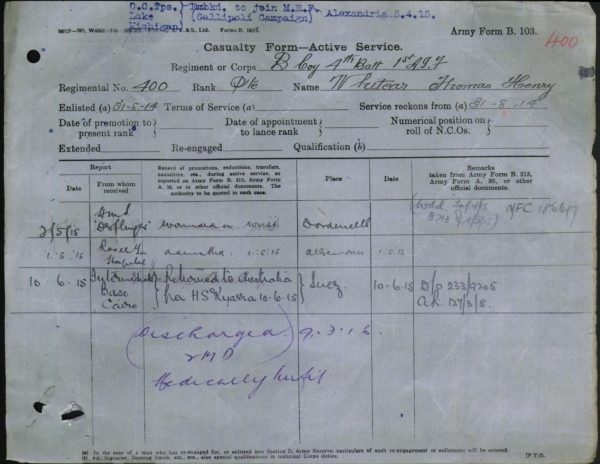 O.C.Tps. Embkd. to join M.E.F.
Lake (Gallipoli Campaign) Alexandria 5.4.15.
Michigan)
& S., Ltd. Forms B. 103/.
Army Form B. 103.
400
Casualty Form—Active Service.
Regiment or Corps B Coy 4th Batt 1st A.I.F
Regimental No. 400 Rank Pte Name Thomas Henry
Enlisted (a) 31-8-14 Terms of Service (a) Service reckons from (a) 31-8-14
Date of promotion to present rank } Date of appointment to lance rank } Numerical position on roll of N.C.Os. }
Extended Re-engaged Qualification (b)
Report
Date
From whom received
Record of promotions, reductions, transfers, casualties, etc., during active service, as reported on Army Form B. 213, Army Form A. 36, or in other official documents. The authority to be quoted in each case.
Place
Date
Remarks
taken from Army Form B. 213, Army Form A. 36, or other official documents.
2/5/15 wounded
1.5.15 Hospital 1.5.15
10.6.15 Intermediate Base Cairo } Returned to Australia per HS Kyarra 10.6.15 } Suez 10.6.15 D/o 233/9205
Discharged 9.3.16
2 MD
Medically Unfit
(a) In the case of a man who has re-engaged for, or enlisted into Section D, Army Reserve, particulars of such re-engagement or enlistment will be entered.
(b) e.g., Signaller, Shoeing Smith, etc., etc., also special qualifications in technical Corps duties.
[P.T.O.